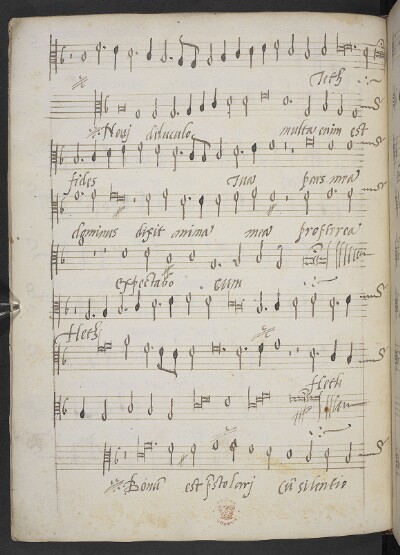 Teth
Nouj diluculo multa enim est
fides Tua pars mea
dominus dixit anima mea propterea
expectabo eum
Heth
Heth
Bonū est prstolarj Cū silentio